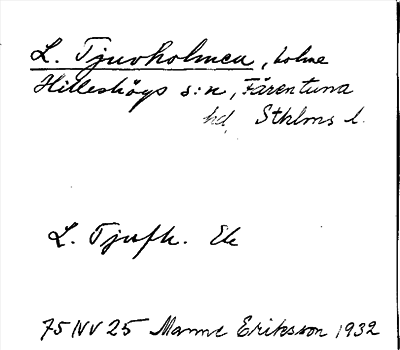 L. Tjuvholmen, holme
Hilleshögs s:n, Färentuna
hd, Sthlms l.
L. Tjufh. Ek
75 NV 25 Manne Eriksson 1932